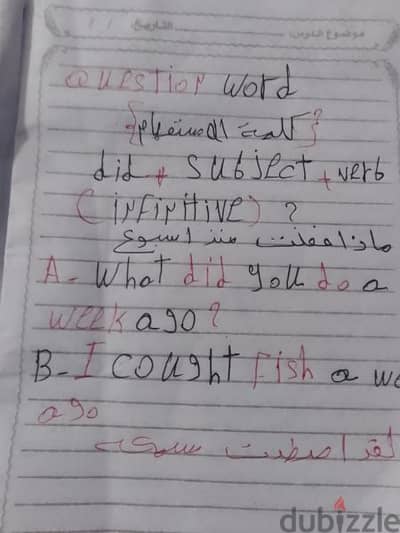 موضوع الدرس التاريخ / /
Question word
{كلمة الاستفهام؟}
did + subject + verb
(infinitive) ?
ماذا فعلت منذ اسبوع
A- What did you do a
week ago?
B- I cought fish a we
ago
لقد اصطدت سمكة
dubizzle